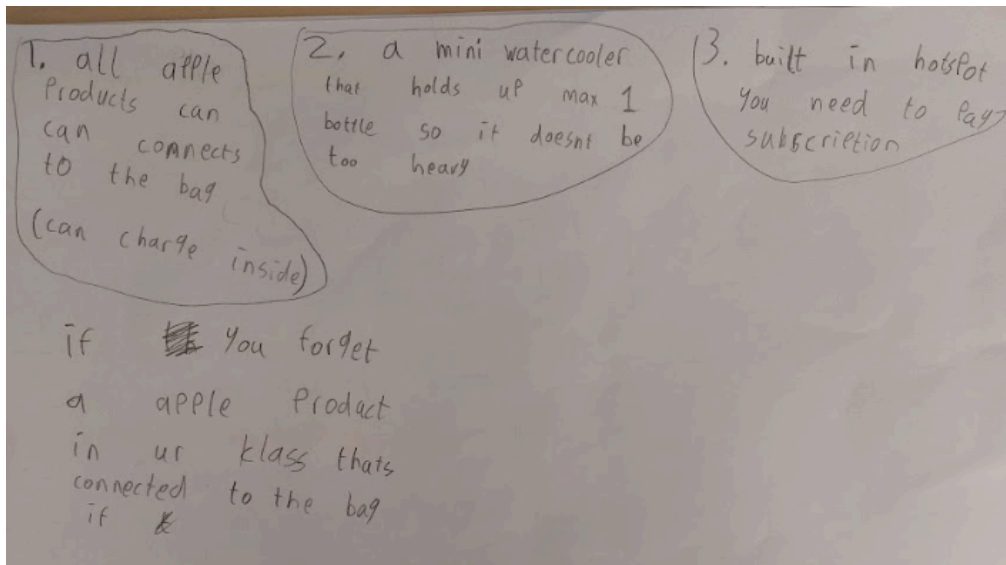 1. all apple
Products can
can connects
to the bag
(can charge inside)
2. a mini watercooler
that holds up max 1
bottle so it doesnt be
too heavy
3. built in hotspot
you need to pay
subscription
if you forget
a apple Product
in ur klass thats
connected to the bag
if